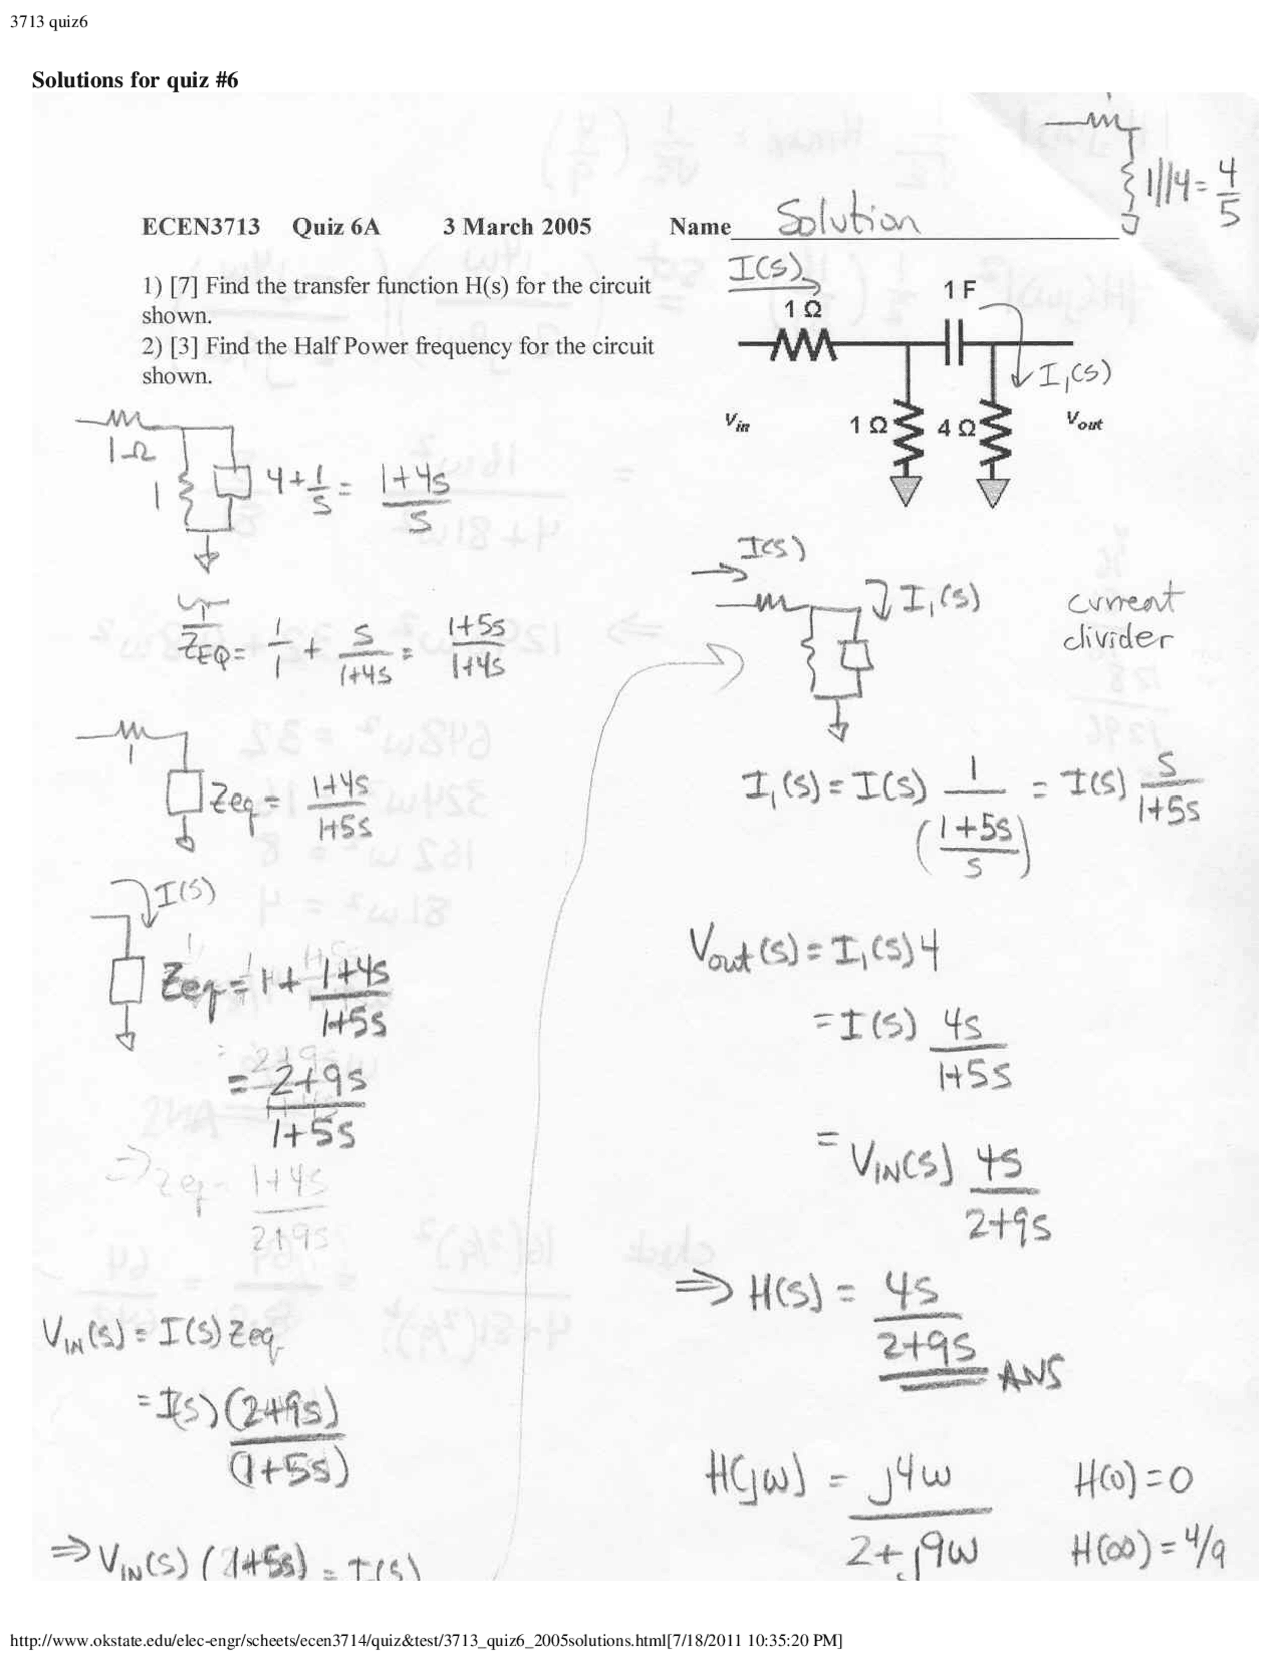 3713 quiz6
Solutions for quiz #6
1//4 = 4/5
ECEN3713 Quiz 6A 3 March 2005 Name Solution
1) [7] Find the transfer function H(s) for the circuit
shown.
2) [3] Find the Half Power frequency for the circuit
shown.
I(s)
1 Ω
1 F
I₁(s)
Vin
1 Ω
4 Ω
Vout
1Ω
1
4+1/s = (1+4s)/s
1/ZEQ = 1/1 + s/(1+4s) = (1+5s)/(1+4s)
1
Zeq = (1+4s)/(1+5s)
I(s)
Zeq = 1 + (1+4s)/(1+5s)
= (2+9s)/(1+5s)
⇒ Zeq = (1+4s)/(2+9s)
VIN(s) = I(s) Zeq
= I(s) (2+9s)/(1+5s)
⇒ VIN(s) (1+5s) = I(s)
I(s)
I₁(s)
current
divider
I₁(s) = I(s) 1/((1+5s)/s) = I(s) s/(1+5s)
Vout(s) = I₁(s) 4
= I(s) 4s/(1+5s)
= VIN(s) 4s/(2+9s)
⇒ H(s) = 4s/(2+9s) ANS
H(jω) = j4ω/(2+j9ω)
H(0) = 0
H(∞) = 4/9
http://www.okstate.edu/elec-engr/scheets/ecen3714/quiz&test/3713_quiz6_2005solutions.html[7/18/2011 10:35:20 PM]